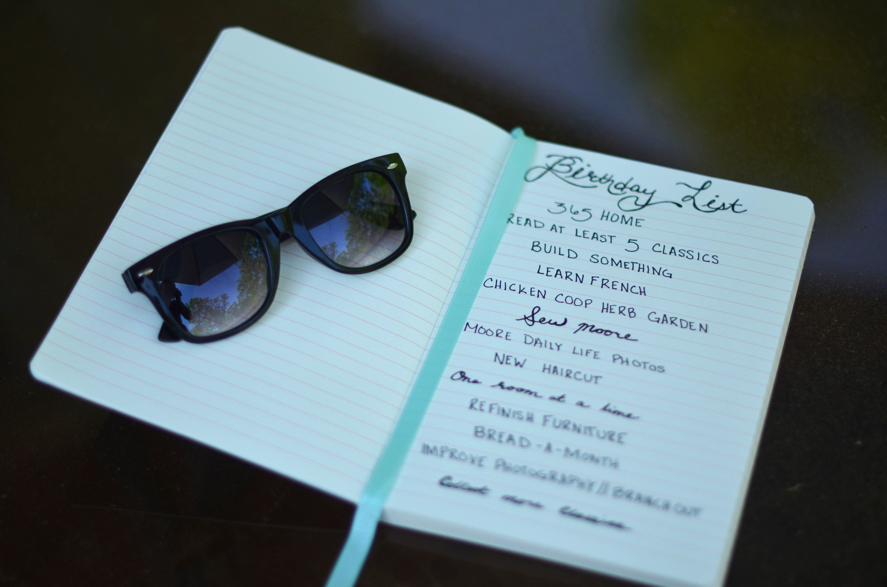 Birthday List
365 HOME
READ AT LEAST 5 CLASSICS
BUILD SOMETHING
LEARN FRENCH
CHICKEN COOP HERB GARDEN
Sew moore
MOORE DAILY LIFE PHOTOS
NEW HAIRCUT
One room at a time
REFINISH FURNITURE
BREAD-A-MONTH
IMPROVE PHOTOGRAPHY//BRANCH OUT
Collect more classics